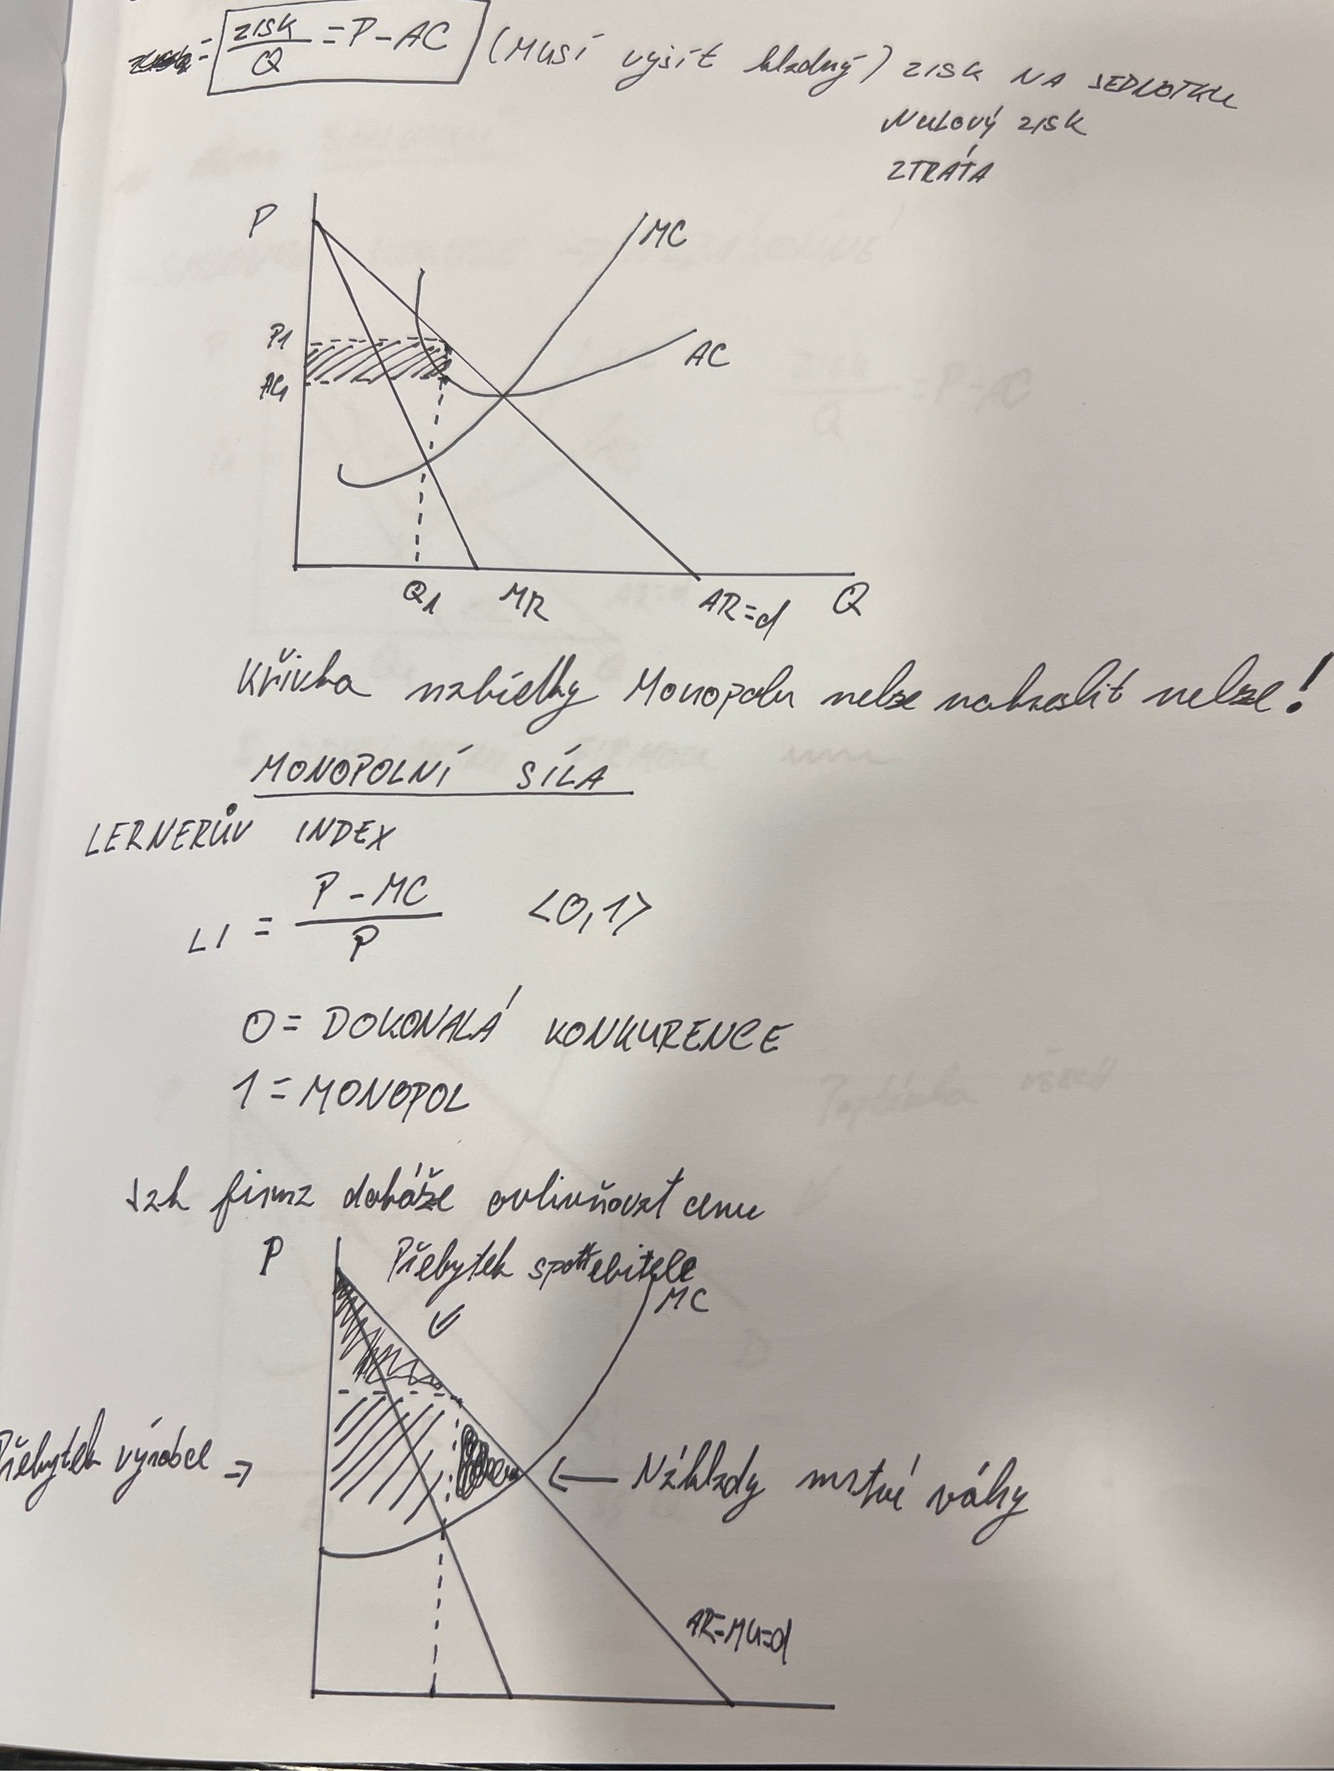 = ZISK/Q = P - AC (MUSÍ vyjít kladný) ZISK NA JEDNOTKU
NULOVÝ ZISK
ZTRÁTA
P
MC
P1
AC
AC1
Q1 MR AR=d Q
Křivka nabídky Monopolu nelze nakreslit nelze!
MONOPOLNÍ SÍLA
LERNERŮV INDEX
LI = (P - MC)/P <0,1>
0 = DOKONALÁ KONKURENCE
1 = MONOPOL
Jak firma dokáže ovlivňovat cenu
P Přebytek spotřebitele
MC
Přebytek výrobce ⇒
← Náklady mrtvé váhy
AR=MU=d